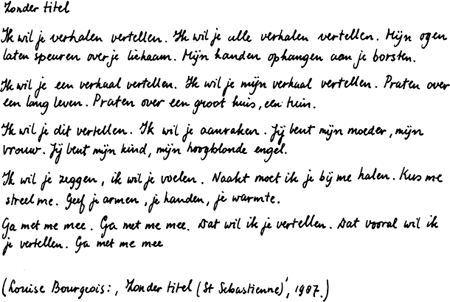 Zonder titel
Ik wil je verhalen vertellen. Ik wil je alle verhalen vertellen. Mijn ogen
laten speuren over je lichaam. Mijn handen ophangen aan je borsten.
Ik wil je een verhaal vertellen. Ik wil je mijn verhaal vertellen. Praten over
een lang leven. Praten over een groot huis, een tuin.
Ik wil je dit vertellen. Ik wil je aanraken. Jij bent mijn moeder, mijn
vrouw. Jij bent mijn kind, mijn hoogblonde engel.
Ik wil je zeggen, ik wil je voelen. Naakt moet ik je bij me halen. Kus me
streel me. Geef je armen, je handen, je warmte.
Ga met me mee. Ga met me mee. Dat wil ik je vertellen. Dat vooral wil ik
je vertellen. Ga met me mee
(Louise Bourgeois:, Zonder titel (St Sebastienne)', 1987.)